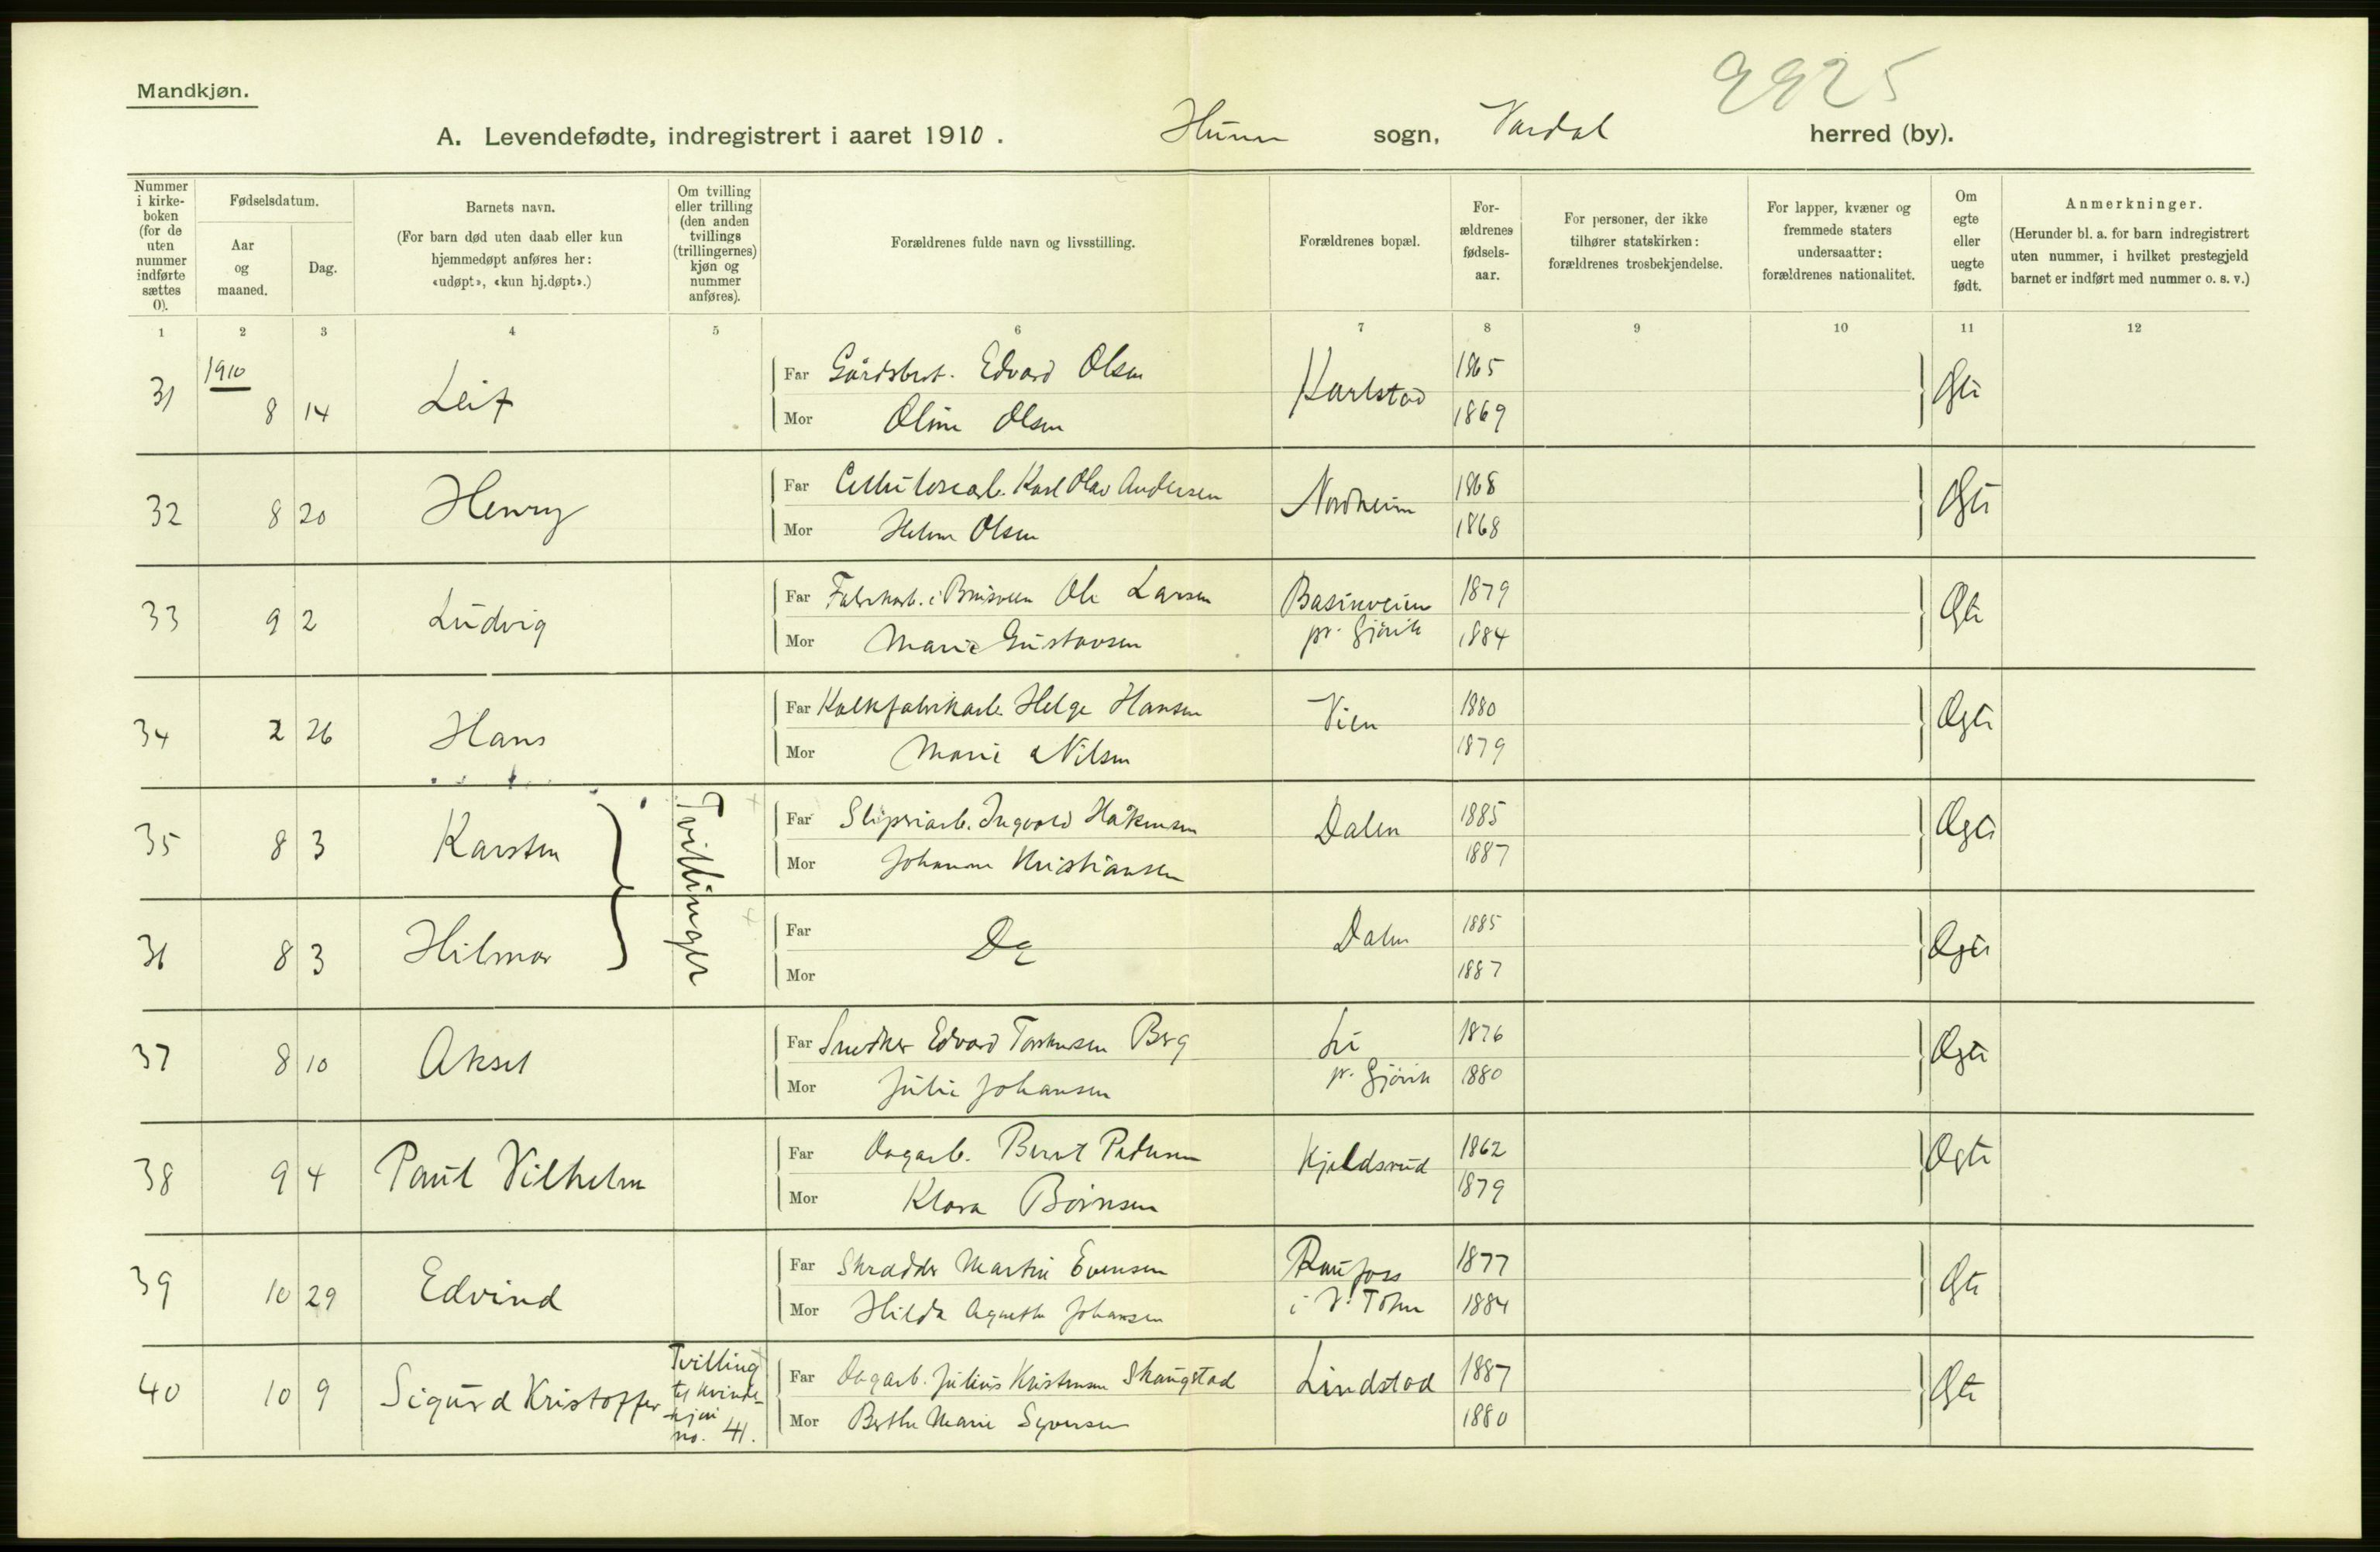 9925
Mandkjøn.
A. Levendefødte, indregistrert i aaret 1910. Hunn sogn, Vardal herred (by).
Nummer i kirke-boken (for de uten nummer indførte sættes 0).
Fødselsdatum.
Aar og maaned.
Dag.
Barnets navn.
(For barn død uten daab eller kun hjemmedøpt anføres her: «udøpt», «kun hj.døpt».)
Om tvilling eller trilling (den anden tvillings (trillingernes) kjøn og nummer anføres).
Forældrenes fulde navn og livsstilling.
Forældrenes bopæl.
For-ældrenes fødsels-aar.
For personer, der ikke tilhører statskirken: forældrenes trosbekjendelse.
For lapper, kvæner og fremmede staters undersaatter: forældrenes nationalitet.
Om egte eller uegte født.
Anmerkninger.
(Herunder bl. a. for barn indregistrert uten nummer, i hvilket prestegjeld barnet er indført med nummer o. s. v.)
1 2 3 4 5 6 7 8 9 10 11 12
1910
31 8 14 Leif Far Edvard Olsen Karlstad 1865 Ægte
Mor Oline Olsen 1869
32 8 20 Henry Far Cellulosearb. Karl Olav Andersen Nordheim 1868 Ægte
Mor Olsen 1868
33 9 2 Ludvig Far Ole Larsen 1879 Ægte
Mor Marie Gustavsen pr. Gjøvik 1884
34 2 26 Hans Far Kalkfabrikarb. Helge Hansen Vien 1880 Ægte
Mor Marie Nilsen 1879
35 8 3 Karsten Tvillinger Far Sliperiarb. Ingvald Håkensen Dalen 1885 Ægte
Mor Johanne Kristiansen 1887
36 8 3 Hilmar Far Do Dalen 1885 Ægte
Mor 1887
37 8 10 Aksel Far Snedker Edvard Berg Li 1876 Ægte
Mor Julie Johansen pr. Gjøvik 1880
38 9 4 Paul Vilhelm Far Dagarb. Bernt Pedersen Kjeldsrud 1862 Ægte
Mor Klara 1879
39 10 29 Edvind Far Skrædder Martin Evensen Raufoss 1877 Ægte
Mor Hilda Agnethe Johansen i V. Toten 1884
40 10 9 Sigurd Kristoffer Tvilling til kvinde-kjøn no. 41. Far Dagarb. Julius Kristensen Skaugstad Lindstad 1887 Ægte
Mor Berthe Marie Syversen 1880